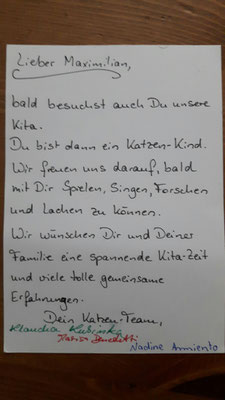 Lieber Maximilian,
bald besuchst auch Du unsere
Kita.
Du bist dann ein Katzen-Kind.
Wir freuen uns darauf, bald
mit Dir Spielen, Singen, Forschen
und Lachen zu können.
Wir wünschen Dir und Deiner
Familie eine spannende Kita-Zeit
und viele tolle gemeinsame
Erfahrungen.
Dein Katzen-Team,
Klaudia
Nadine Armiento